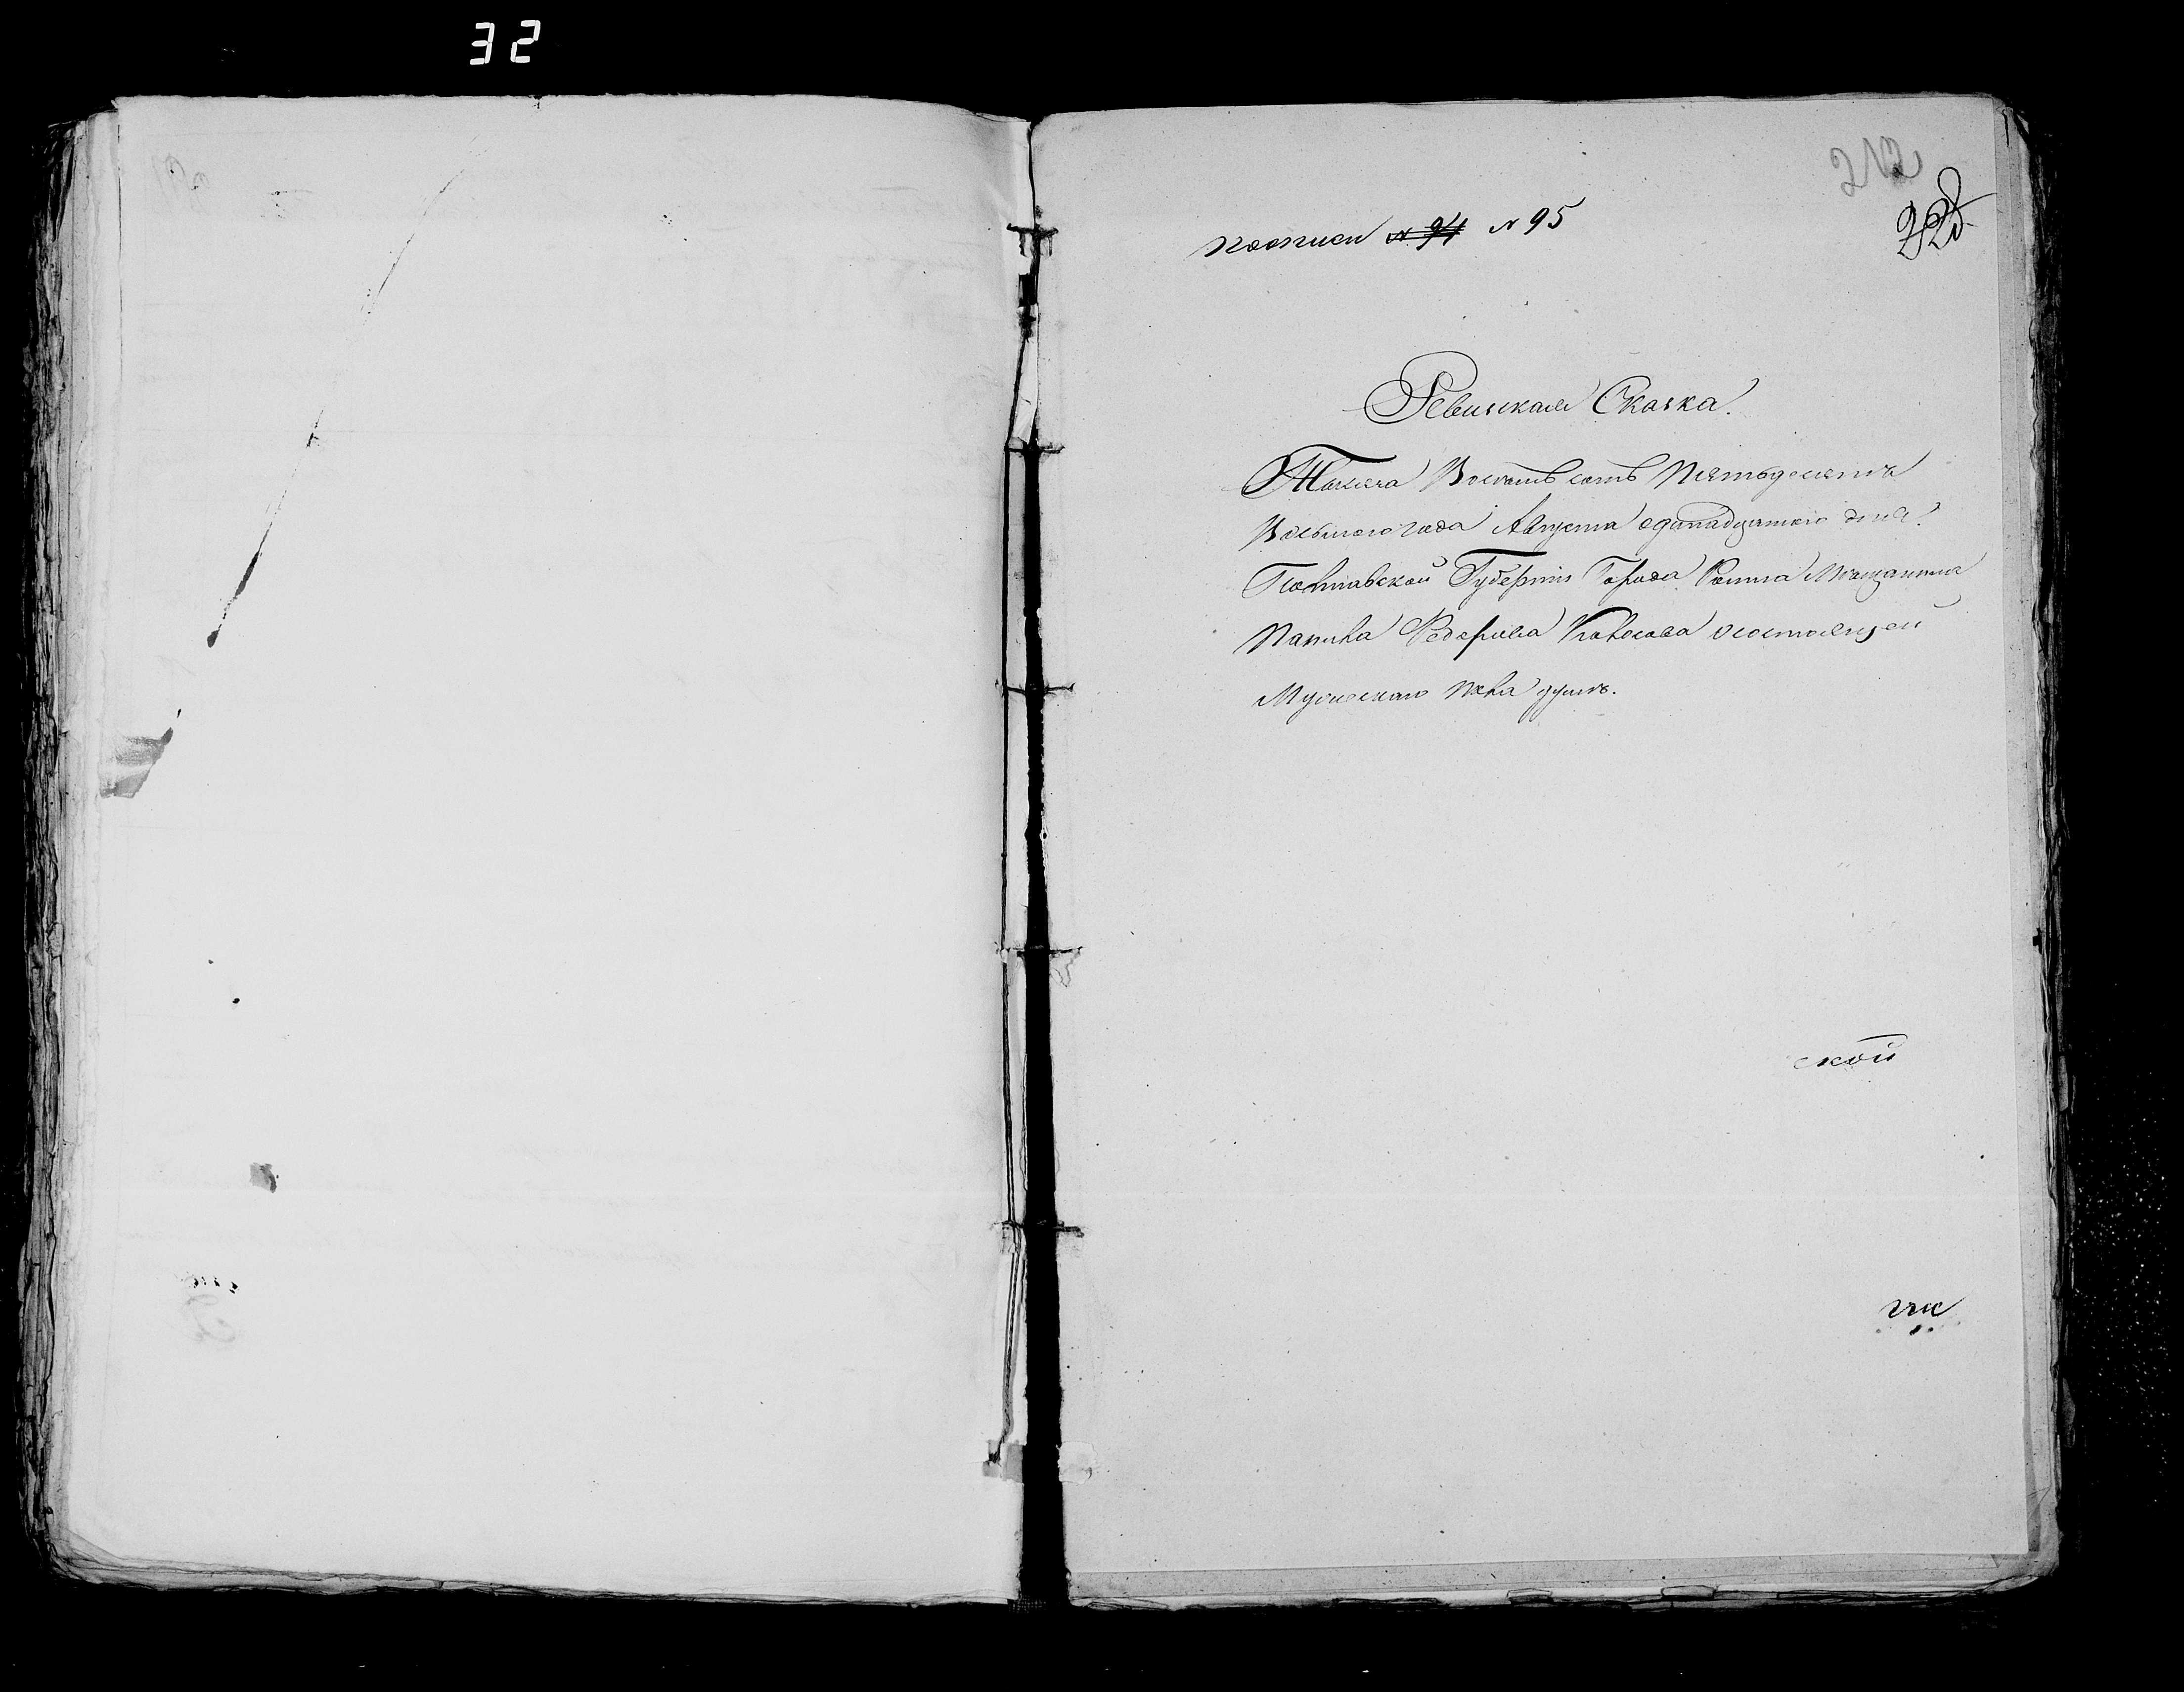 32
212
228
поописи № 94 № 95
Ревизская Сказка.
Тысяча Восемь сотъ Пятьдесятъ
Восьмого года Августа одинадцатого дня.
Полтавской Губерніи Города Ромна Мѣщанина
Павла Федорова состоящей
Мужескаго пола душъ.
ской